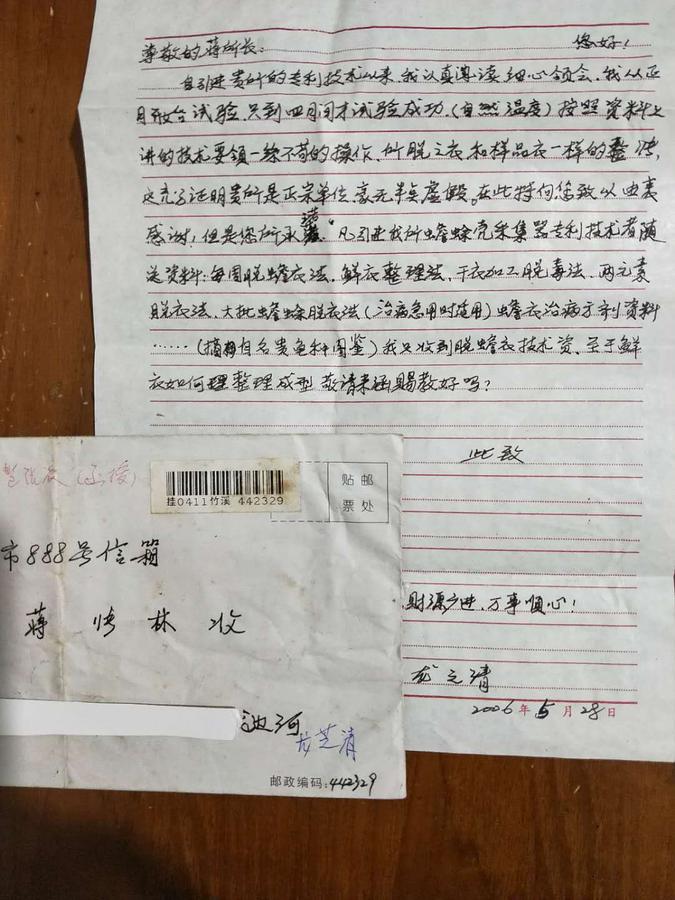 尊敬的蒋所长： 您好！
自引进贵所的专利技术以来，我认真
我从正
月开始试验，只到四月间才试验成功，（自然温度）按照资料上
讲的技术要领一丝不苟的操作，所脱之衣和样品衣一样的
这充分证明贵所是正宗单位，毫无半点虚假。在此特向您致以由衷
感谢！但是您所承诺“凡引进我所蟾蜍壳采集器专利技术者随
送资料：每周脱蟾衣法，鲜衣整理法，干衣加工脱毒法，两元素
脱衣法，大批蟾蜍脱衣法（治病急用时适用）蟾衣治病方剂资料
……（ 名贵龟种图鉴）我只收到脱蟾衣技术资，至于鲜
衣如何理整理成型 敬请来函赐教好吗？
此致
财源广进，万事顺心！
龙之清
2006年5月28日
（函授）
贴邮
票处
挂0411竹溪 442329
市888号信箱
蒋 林 收
河
龙芝清
邮政编码：442329